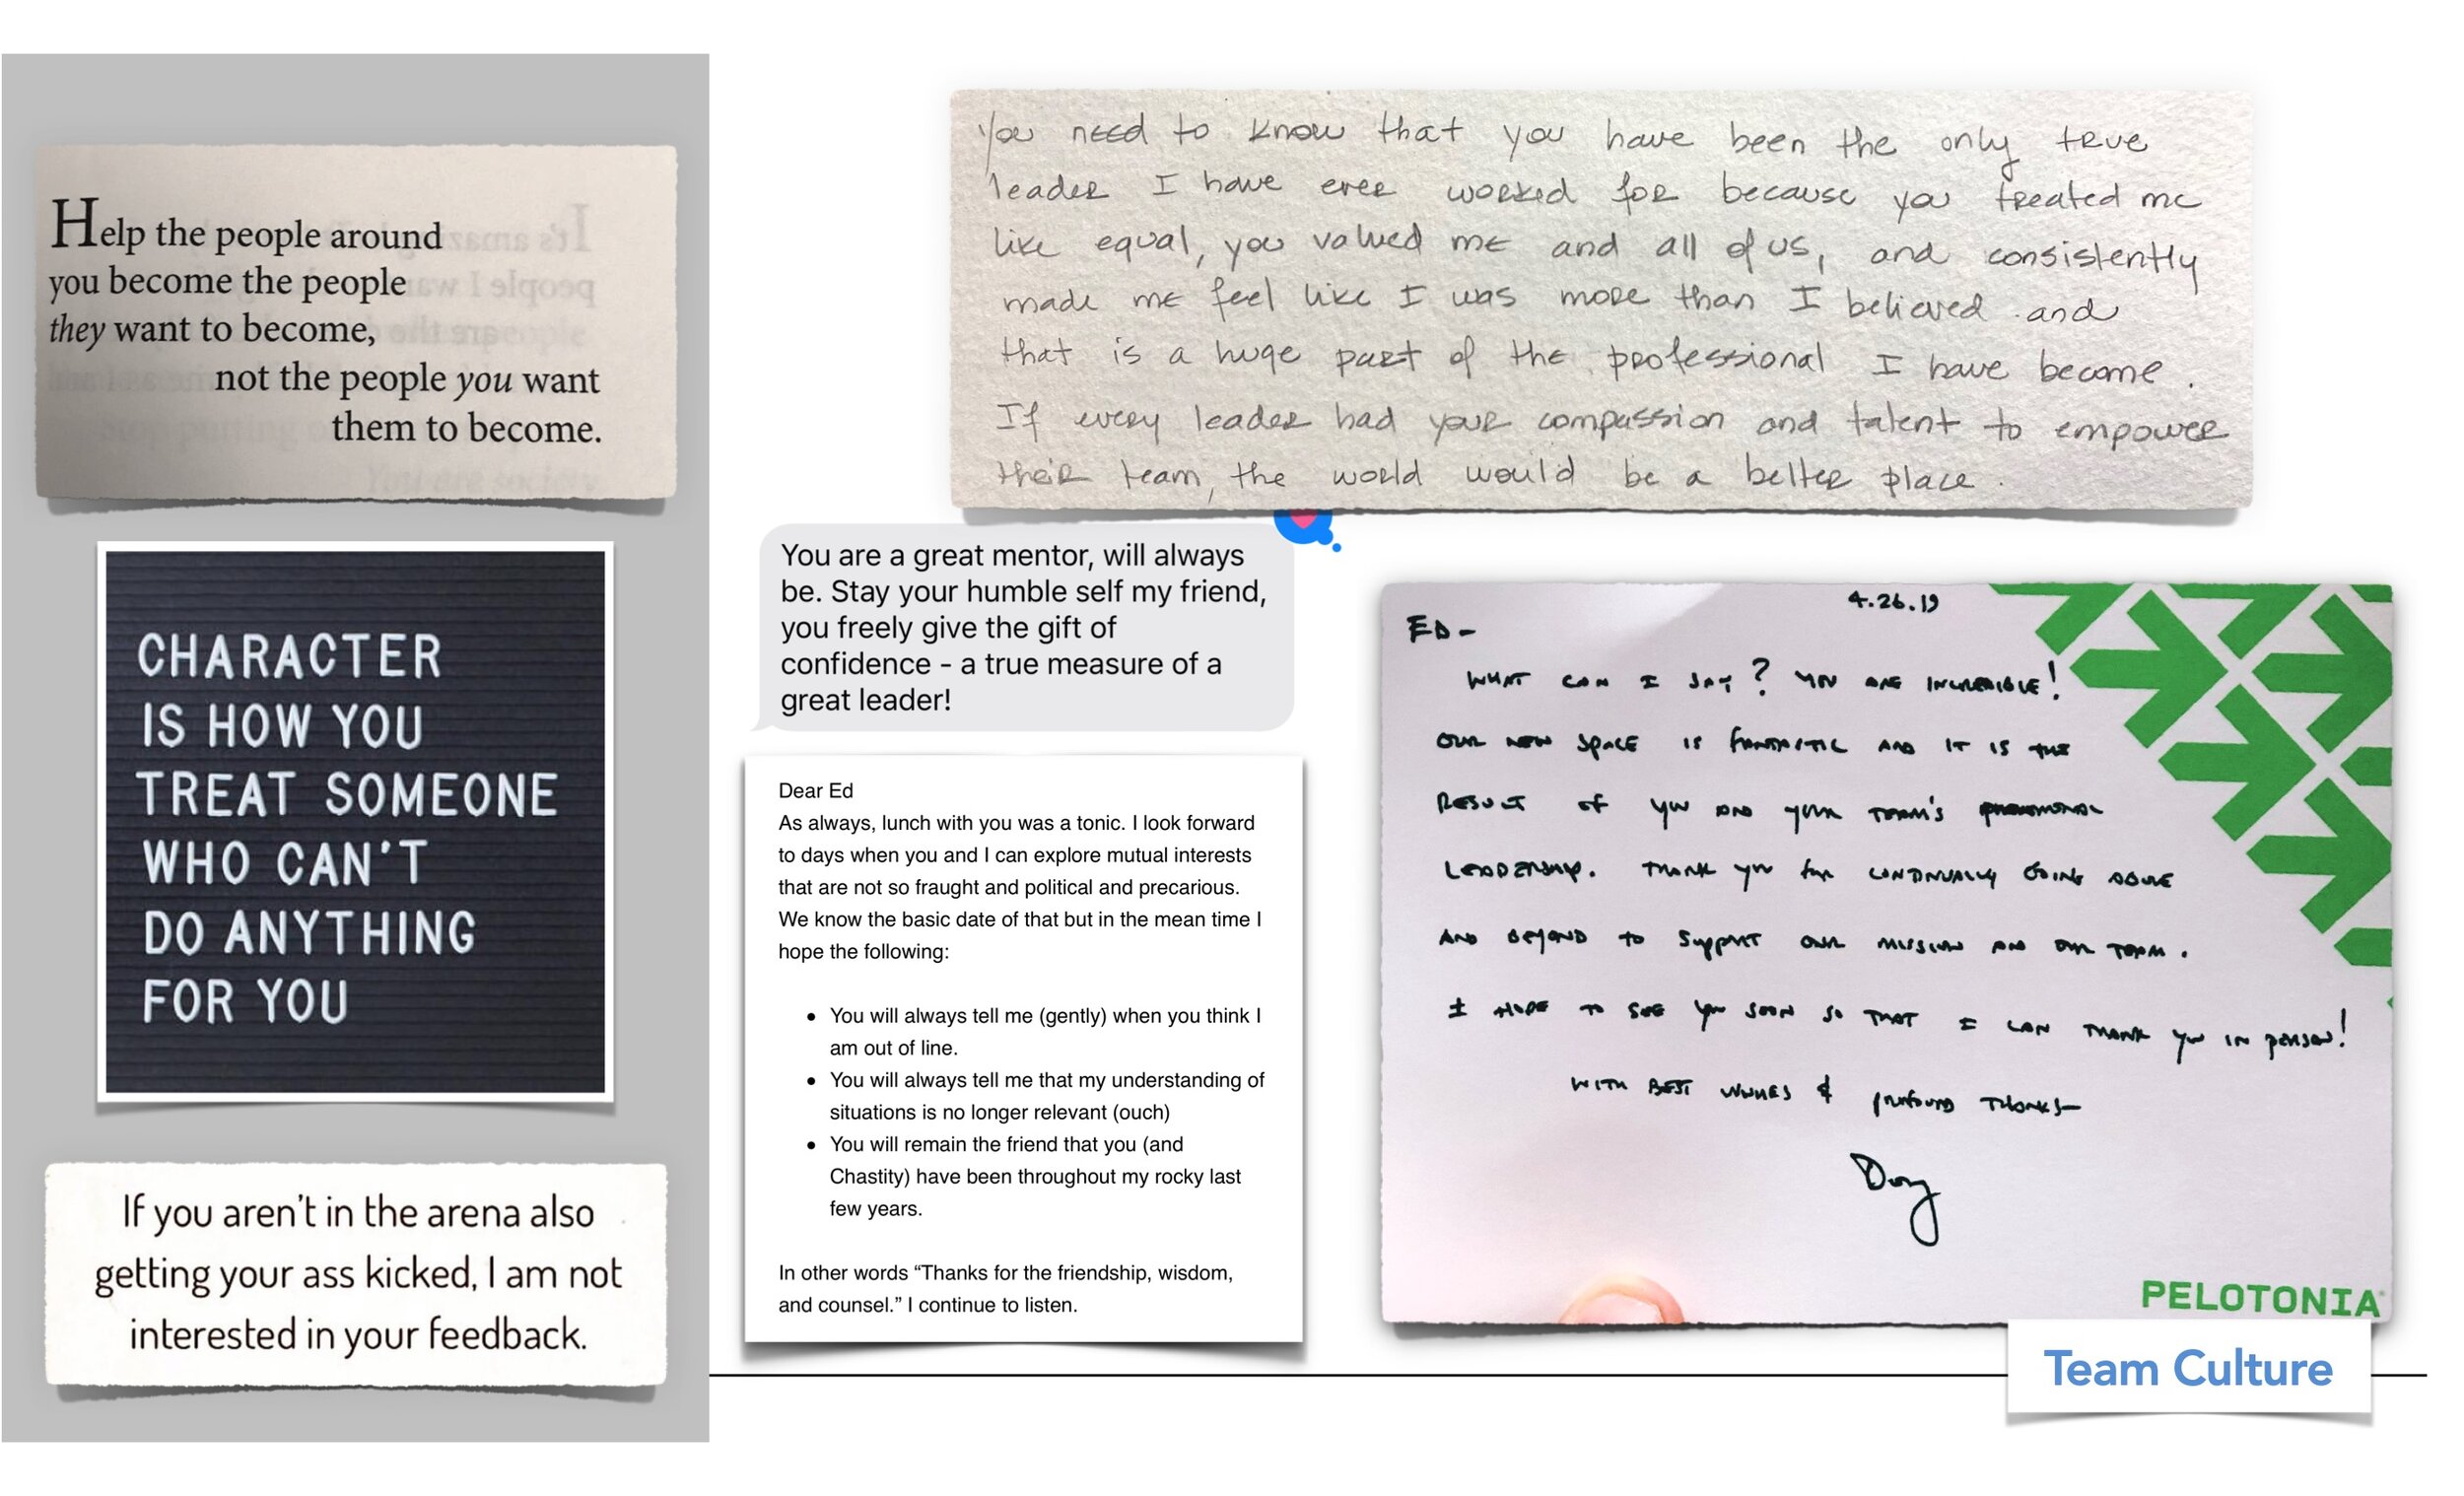 Help the people around
you become the people
they want to become,
not the people you want
them to become.
CHARACTER
IS HOW YOU
TREAT SOMEONE
WHO CAN'T
DO ANYTHING
FOR YOU
If you aren't in the arena also
getting your ass kicked, I am not
interested in your feedback.
You need to know that you have been the only true
leader I have ever worked for because you treated me
like equal, you valued me and all of us, and consistently
made me feel like I was more than I believed and
that is a huge part of the professional I have become.
If every leader had your compassion and talent to empower
their team, the world would be a better place.
You are a great mentor, will always
be. Stay your humble self my friend,
you freely give the gift of
confidence - a true measure of a
great leader!
Dear Ed
As always, lunch with you was a tonic. I look forward
to days when you and I can explore mutual interests
that are not so fraught and political and precarious.
We know the basic date of that but in the mean time I
hope the following:
• You will always tell me (gently) when you think I
am out of line.
• You will always tell me that my understanding of
situations is no longer relevant (ouch)
• You will remain the friend that you (and
Chastity) have been throughout my rocky last
few years.
In other words “Thanks for the friendship, wisdom,
and counsel.” I continue to listen.
4.26.19
ED-
WHAT CAN I SAY? YOU ARE INCREDIBLE!
OUR NEW SPACE IS FANTASTIC AND IT IS THE
RESULT OF YOU AND YOUR TEAM'S PHENOMENAL
LEADERSHIP. THANK YOU FOR CONTINUALLY GOING ABOVE
AND BEYOND TO SUPPORT OUR MISSION AND OUR TEAM.
I HOPE TO SEE YOU SOON SO THAT I CAN THANK YOU IN PERSON!
WITH BEST WISHES & PROFOUND THANKS-
Doug
PELOTONIA
Team Culture